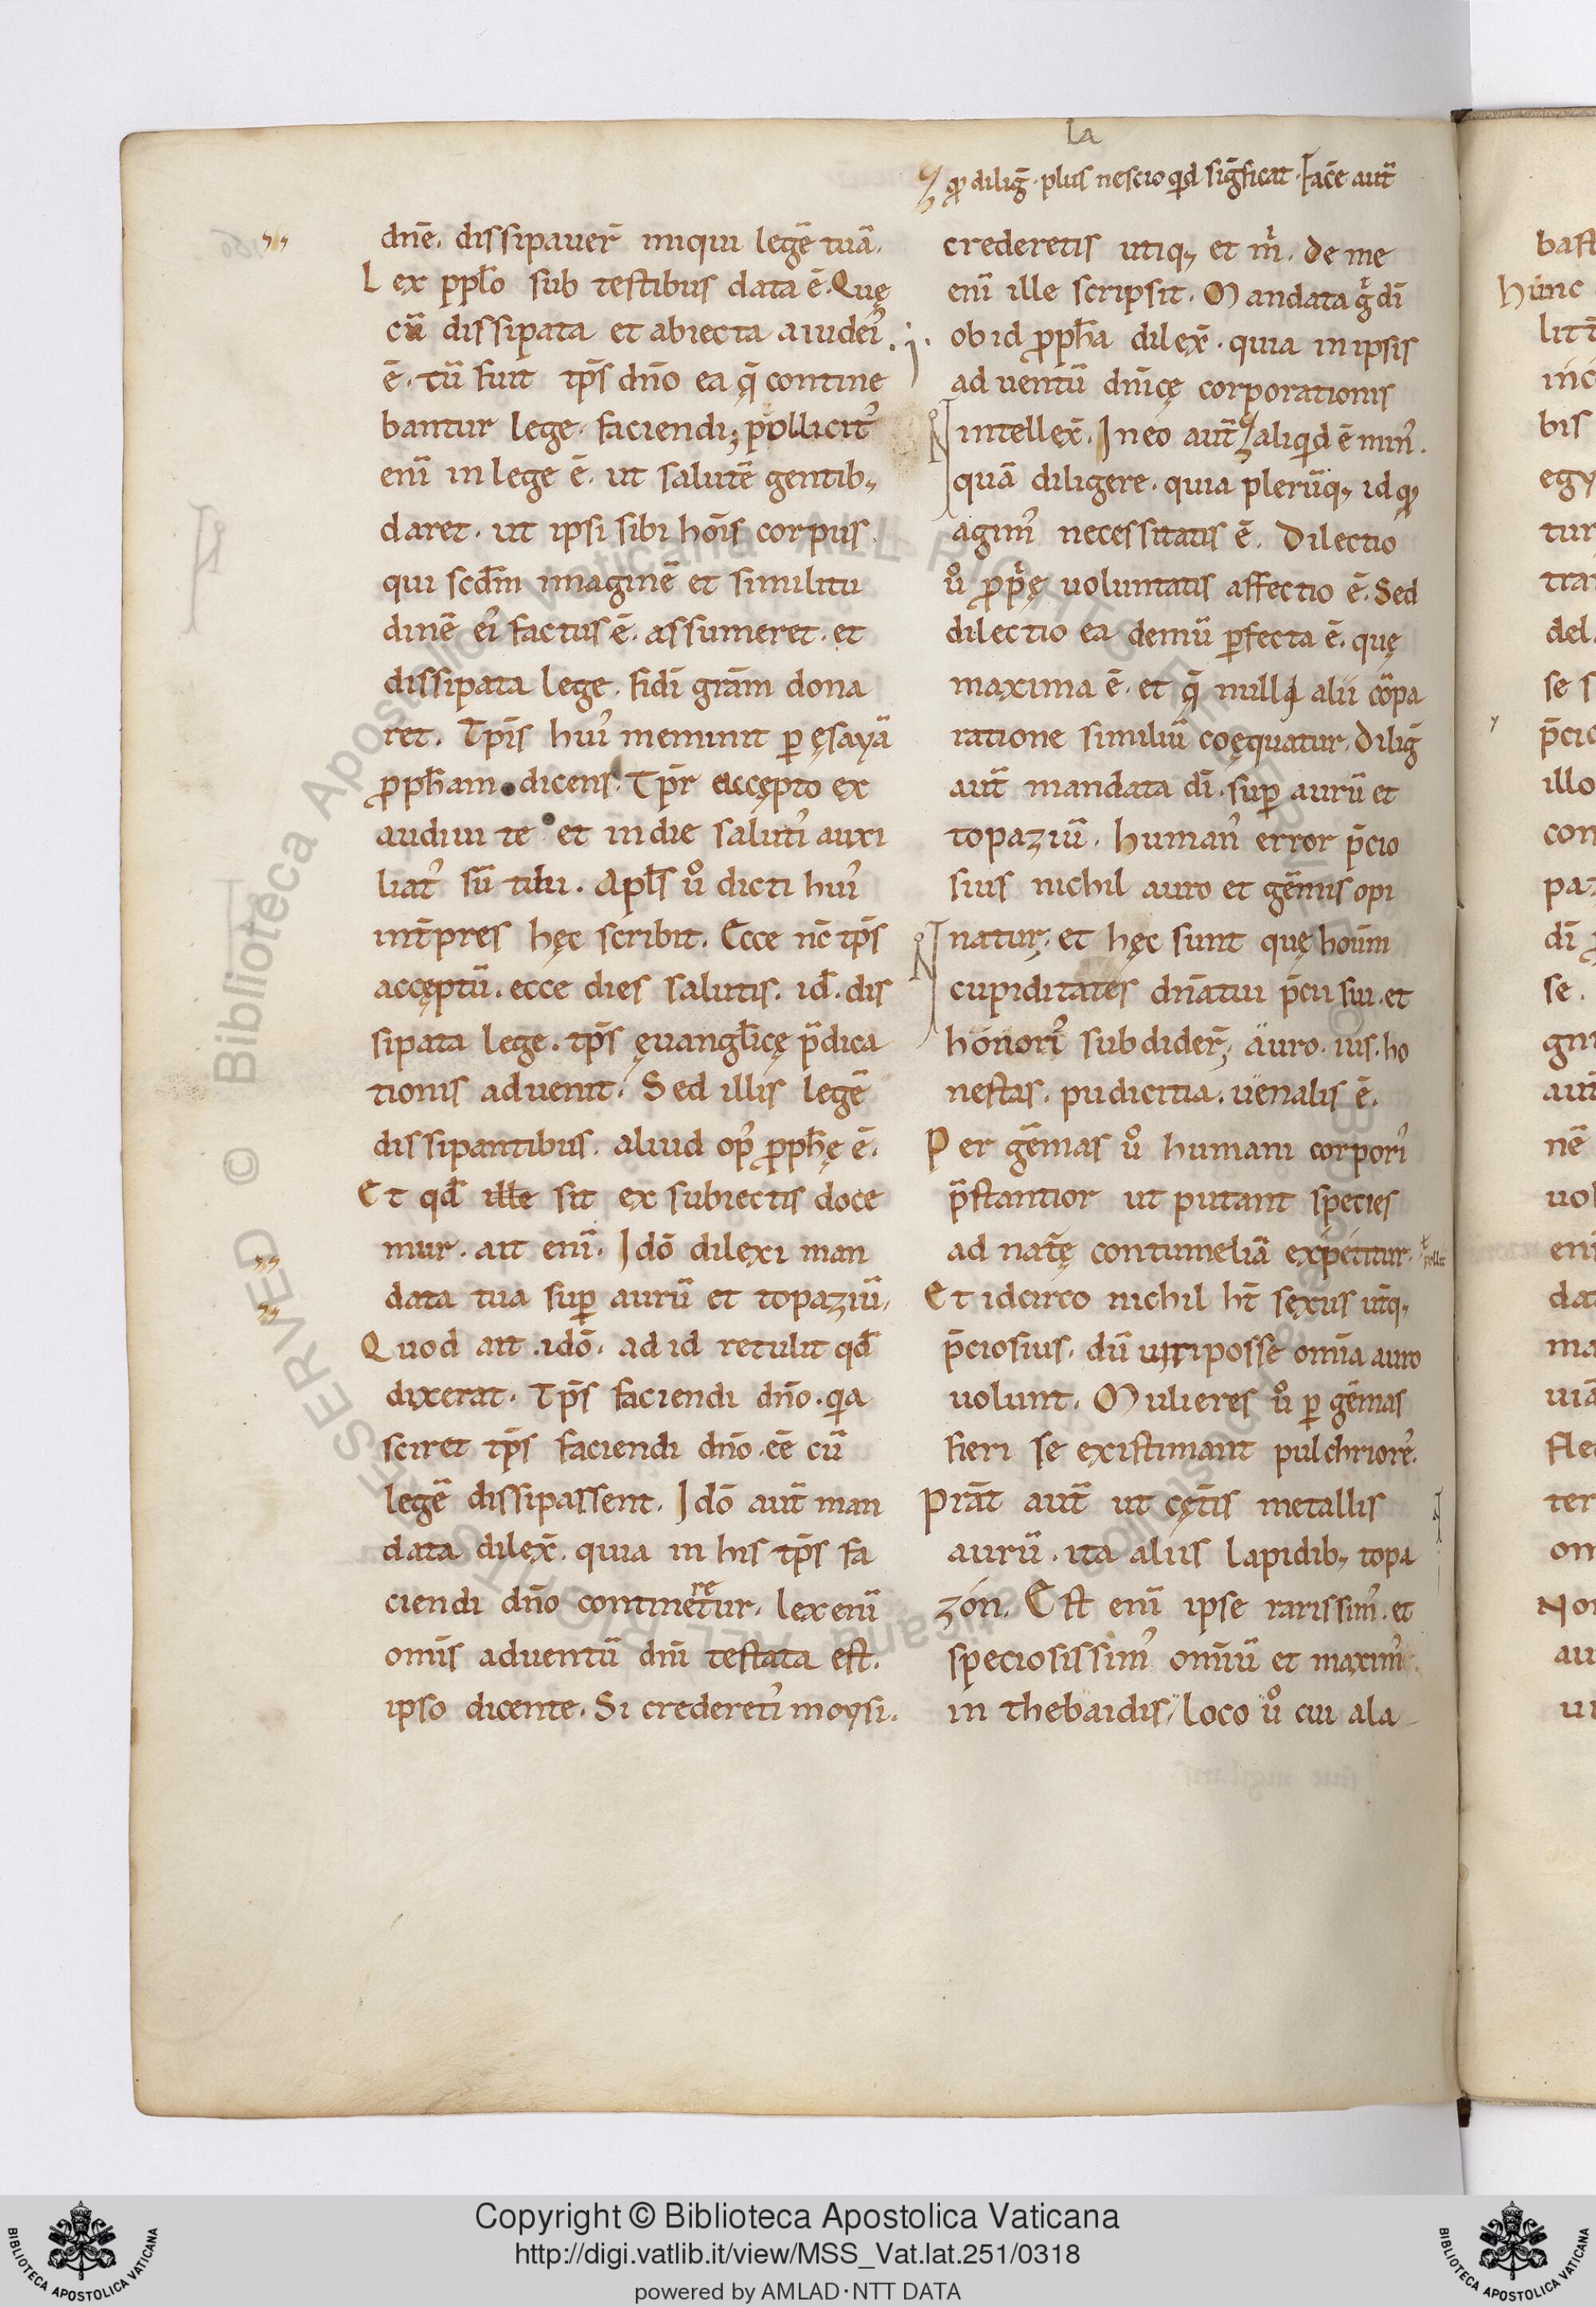 la
ꝓ diliḡ · plus nescio qid sigficat · facē aut̄
dn̄e. dissipauer̄ iniqui legē tuā.
Lex pplo sub testibus data ē. Quę
cū dissipata et abiecta a iudeis
ē. tū fuit tp̄s dn̄o ea q̄ contine
bantur lege. faciendi; pollicitꝰ
enī in lege ē. ut salutē gentibꝫ
daret. ut ipsi sibi hōis corpus.
qui scd̄m imaginē et similitu
dinē eiꝰ factus ē. assumeret. et
dissipata lege. fidi gr̄am dona
ret. Tp̄is huiꝰ meminit ꝑ ęsayā
ꝓph̄am dicens. Tpr̄ accępto ex
audiui te et in die salutiꝰ auxi
liatꝰ sū tibi. Apl̄s uͦ dicti huiꝰ
int̄pres hęc scribit. Ecce nc̄ tp̄s
accęptū. ecce dies salutis. id̄. dis
sipata lege. tp̄s ęuangl̄icę p̄dica
tionis aduenit. Sed illis legē
dissipantibus. aliud opꝰ ꝓph̄ę ē.
Et qd̄ ille sit ex subiectis doce
mur. ait enī. Idō dilexi man
data tua suꝑ aurū et topaziū.
Quod ait. idō. ad id retulit qd̄
dixerat. Tp̄s faciendi dn̄o. qia
sciret tp̄s faciendi dn̄o. eē cū
legē dissipassent. Idō aut̄ man
data dilex̄. quia in his tp̄s fa
ciendi dn̄o contineretur. lex enī
omīs aduentū dn̄i testata est.
ipso dicente. Si crederetiꝰ moysi.
crederetis utiqꝫ et m̄. de me
enī ille scripsit. Mandata g̊ di
ob id ꝓph̄a dilex̄. quia in ipsis
aduentū dn̄icę corporationis
intellex̄. In eo aut̄ aliqid ē minꝰ.
quā diligere. quia plerūqꝫ id qꝫ
agimꝰ necessitatis ē. Dilectio
uͦ ꝓprię uoluntatis affectio ē. Sed
dilectio ea demū ꝑfecta ē. quę
maxima ē. et q̄ nulli alii cōpa
ratione similiū coęquatur. Diliḡ
aut̄ mandata di. suꝑ aurū et
topaziū. humanꝰ error p̄cio
sius nichil auro et gēmis opi
natur; et hęc sunt quę hoūm
cupiditates dn̄atui p̄cii sui. et
honoriꝰ subdider̄; auro. ius. ho
nestas. pudicitia. uenalis ē.
Per gēmas uͦ humani corporiꝰ
p̄stantior ut putant species
ad nat̄ę contumeliā expetitur.
Et idcirco nichil ht̄ sexus ut̄qꝫ
p̄ciosius. dū uiri posse omīa auro
uolunt. Mulieres uͦ ꝑ gēmas
fieri se existimant pulchrioreꝰ.
Prāt aut̄ ut cęt̄is metallis
aurū. ita aliis lapidibꝫ topa
zon. Est enī ipse rarissimꝰ. et
speciosissimꝰ omīū et maximꝰ.
in thebaidis. loco uͦ cui ala
Copyright © Biblioteca Apostolica Vaticana
http://digi.vatlib.it/view/MSS_Vat.lat.251/0318
powered by AMLAD·NTT DATA